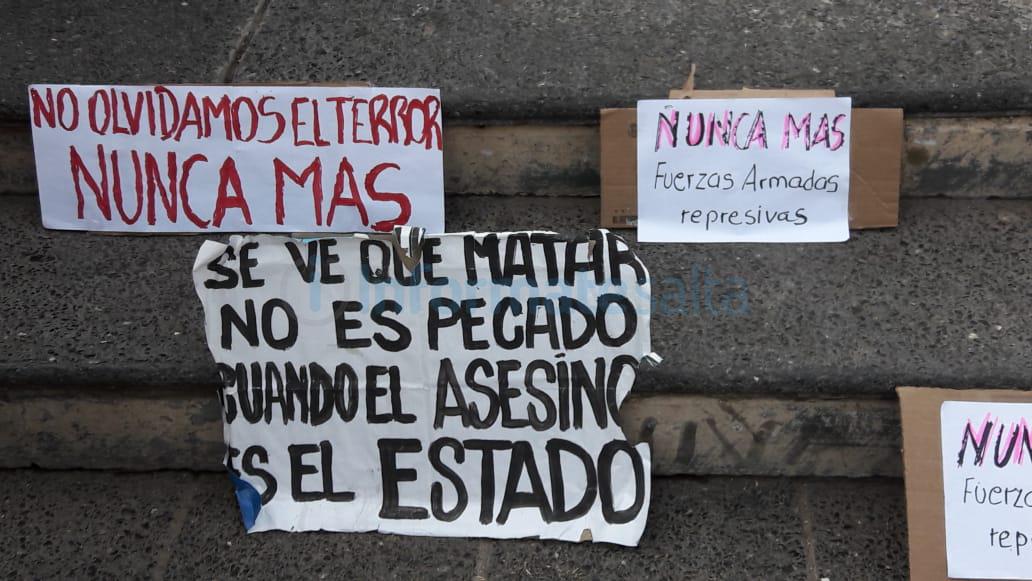 NO OLVIDAMOS EL TERROR
NUNCA MAS
NUNCA MAS
Fuerzas Armadas
represivas
SE VE QUE MATAR
NO ES PECADO
CUANDO EL ASESINO
ES EL ESTADO
Informatesalta
NUN
Fuerza
rep